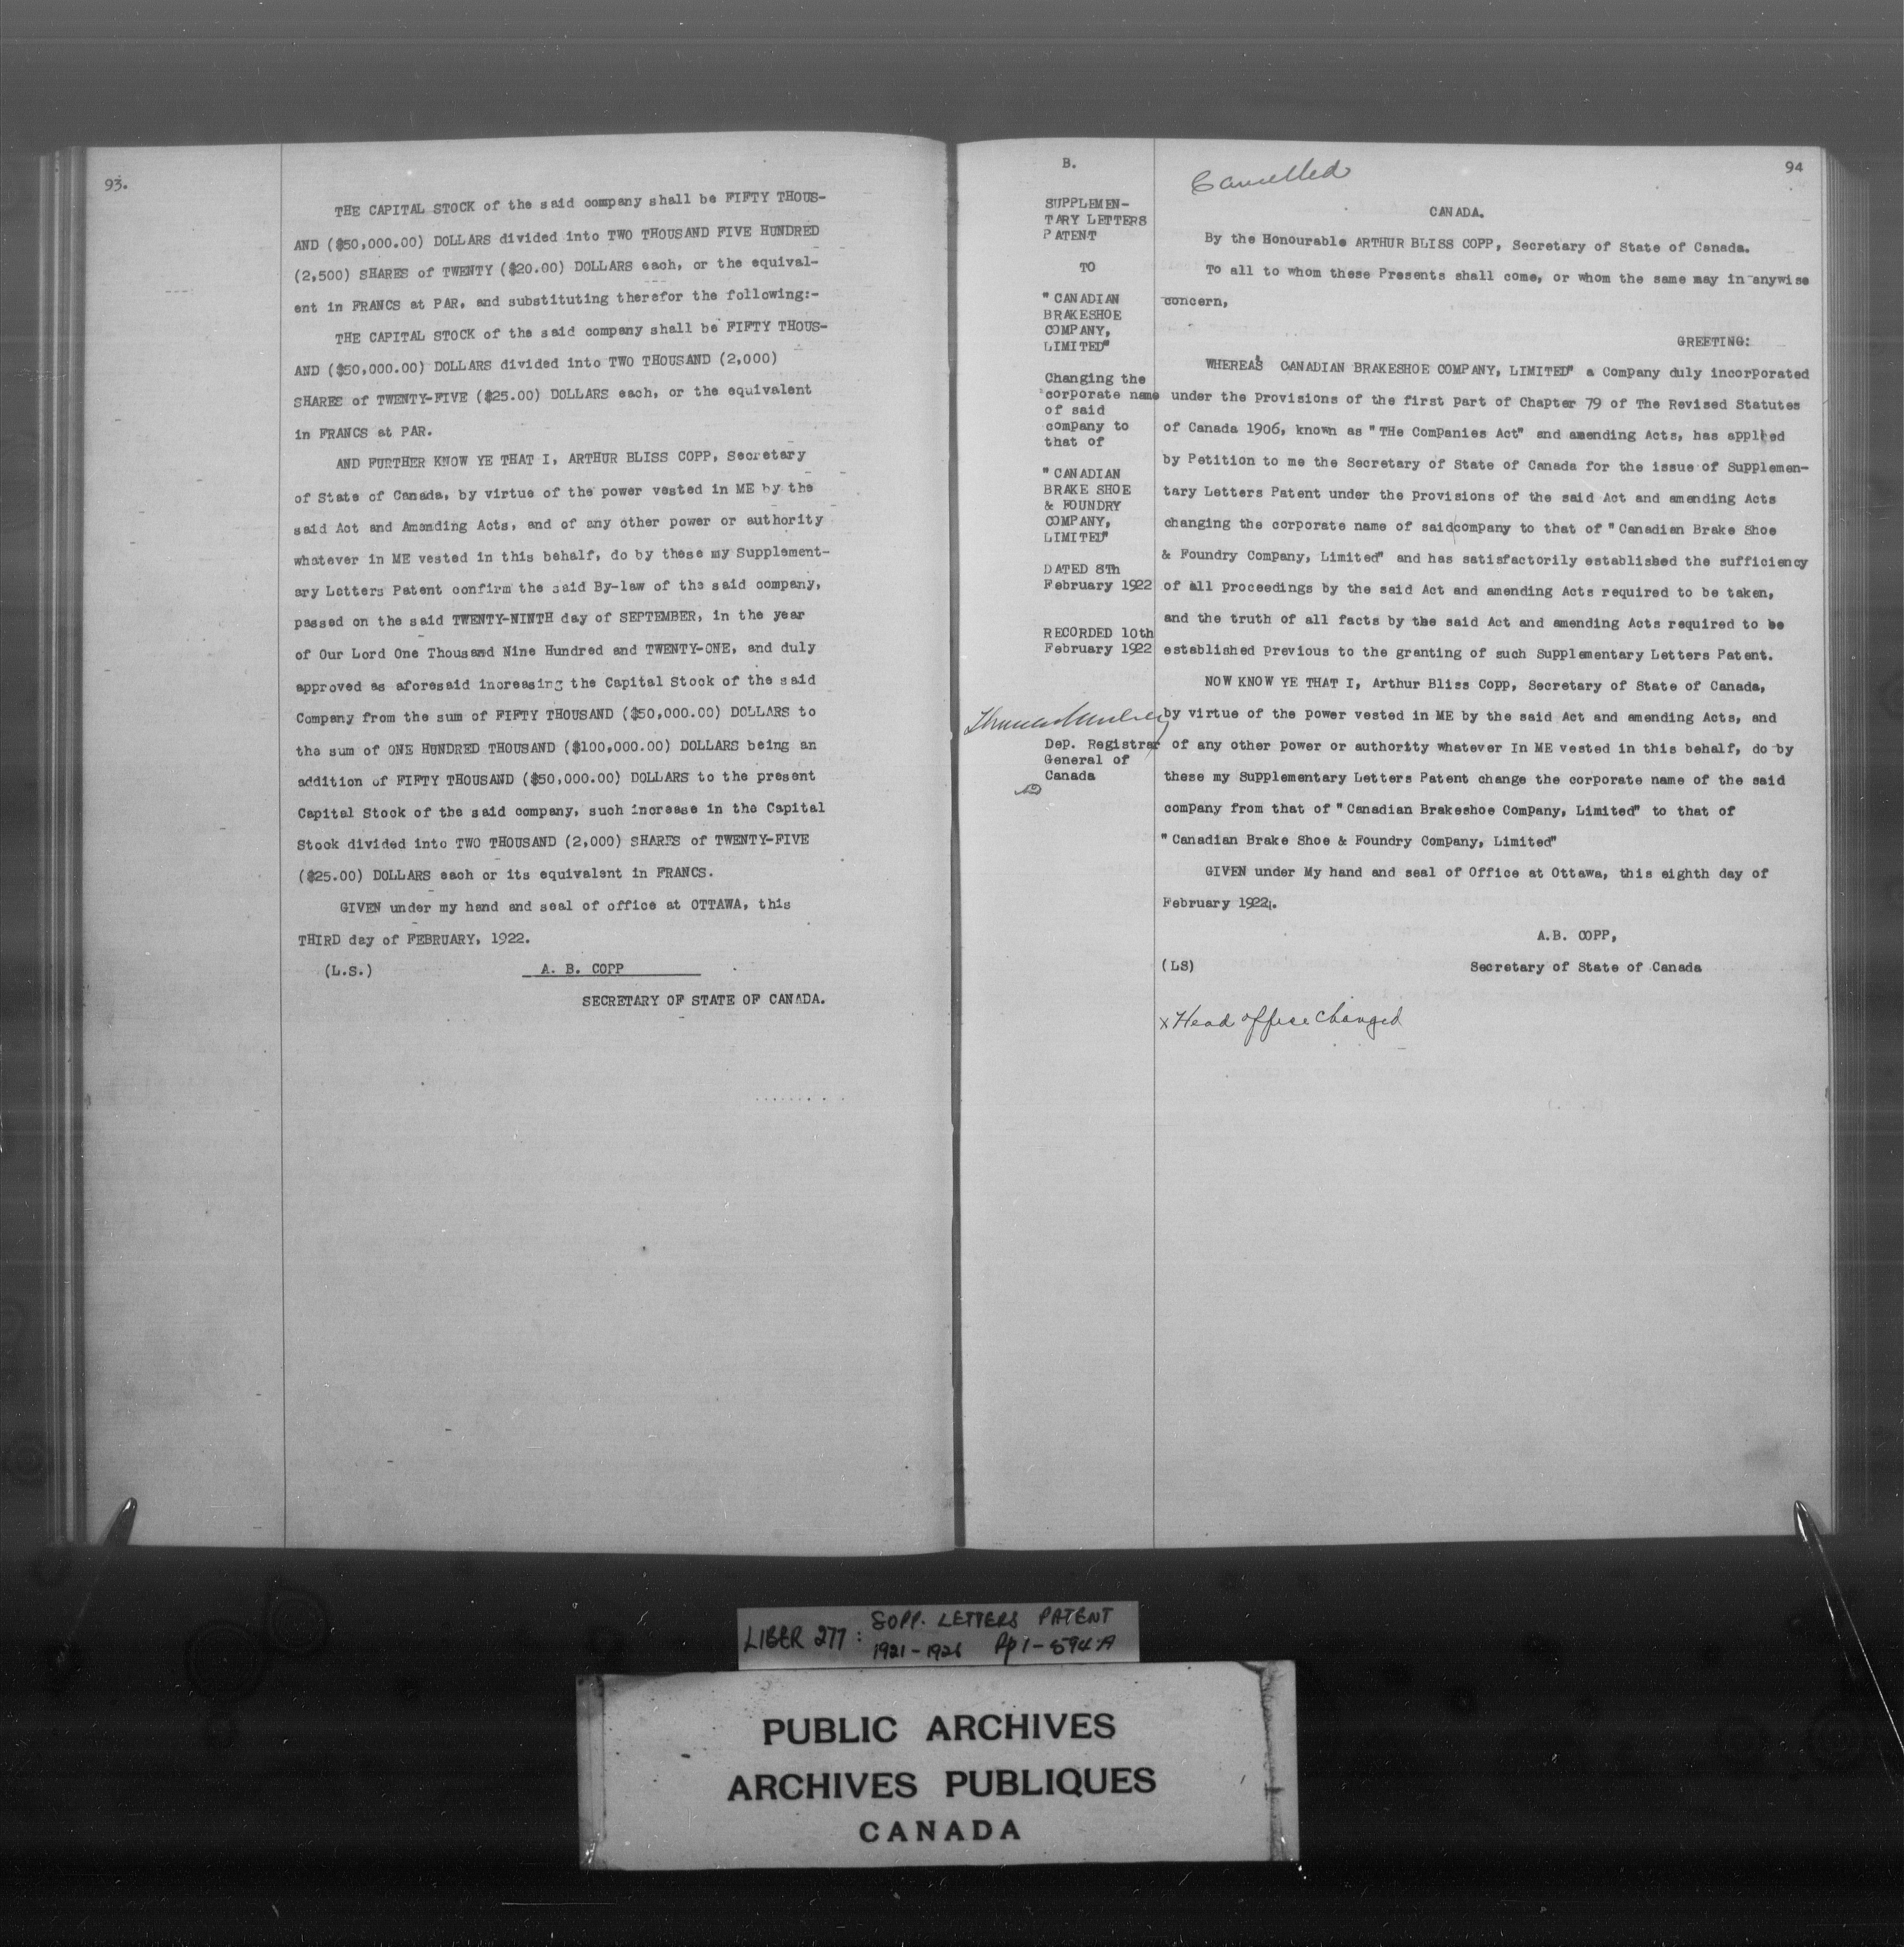 93.
THE CAPITAL STOCK of the said company shall be FIFTY THOUS-
AND ($50,000.00) DOLLARS divided into TWO THOUSAND FIVE HUNDRED
(2,500) SHARES of TWENTY ($20.00) DOLLARS each, or the equival-
ent in FRANCS at PAR, and substituting therefor the following:-
THE CAPITAL STOCK of the said company shall be FIFTY THOUS-
AND ($50,000.00) DOLLARS divided into TWO THOUSAND (2,000)
SHARES of TWENTY-FIVE ($25.00) DOLLARS each, or the equivalent
in FRANCS at PAR.
AND FURTHER KNOW YE THAT I, ARTHUR BLISS COPP, Secretary
of State of Canada, by virtue of the power vested in ME by the
said Act and Amending Acts, and of any other power or authority
whatever in ME vested in this behalf, do by these my Supplement-
ary Letters Patent confirm the said By-law of the said company,
passed on the said TWENTY-NINTH day of SEPTEMBER, in the year
of Our Lord One Thousand Nine Hundred and TWENTY-ONE, and duly
approved as aforesaid increasing the Capital Stock of the said
Company from the sum of FIFTY THOUSAND ($50,000.00) DOLLARS to
the sum of ONE HUNDRED THOUSAND ($100,000.00) DOLLARS being an
addition of FIFTY THOUSAND ($50,000.00) DOLLARS to the present
Capital Stock of the said company, such increase in the Capital
Stock divided into TWO THOUSAND (2,000) SHARES of TWENTY-FIVE
($25.00) DOLLARS each or its equivalent in FRANCS.
GIVEN under my hand and seal of office at OTTAWA, this
THIRD day of FEBRUARY, 1922.
(L.S.) A. B. COPP
SECRETARY OF STATE OF CANADA.
B.
SUPPLEMEN-
TARY LETTERS
PATENT
TO
"CANADIAN
BRAKESHOE
COMPANY,
LIMITED"
Changing the
corporate name
of said
company to
that of
"CANADIAN
BRAKE SHOE
& FOUNDRY
COMPANY,
LIMITED"
DATED 8Th
February 1922
RECORDED 10th
February 1922
Dep. Registrar
General of
Canada
94
Cancelled
CANADA.
By the Honourable ARTHUR BLISS COPP, Secretary of State of Canada.
To all to whom these Presents shall come, or whom the same may in anywise
concern,
GREETING:
WHEREAS CANADIAN BRAKESHOE COMPANY, LIMITED" a Company duly incorporated
under the Provisions of the first Part of Chapter 79 of The Revised Statutes
of Canada 1906, known as "THe Companies Act" and amending Acts, has applied
by Petition to me the Secretary of State of Canada for the issue of Supplemen-
tary Letters Patent under the Provisions of the said Act and amending Acts
changing the corporate name of said company to that of "Canadian Brake Shoe
& Foundry Company, Limited" and has satisfactorily established the sufficiency
of all proceedings by the said Act and amending Acts required to be taken,
and the truth of all facts by the said Act and amending Acts required to be
established Previous to the granting of such Supplementary Letters Patent.
NOW KNOW YE THAT I, Arthur Bliss Copp, Secretary of State of Canada,
by virtue of the power vested in ME by the said Act and amending Acts, and
of any other power or authority whatever In ME vested in this behalf, do by
these my Supplementary Letters Patent change the corporate name of the said
company from that of "Canadian Brakeshoe Company, Limited" to that of
"Canadian Brake Shoe & Foundry Company, Limited"
GIVEN under My hand and seal of Office at Ottawa, this eighth day of
February 1922.
A.B. COPP,
(LS) Secretary of State of Canada
x Head office changed
LIBER 277: SUPP. LETTERS PATENT
1921-1926 Pp 1-594A
PUBLIC ARCHIVES
ARCHIVES PUBLIQUES
CANADA